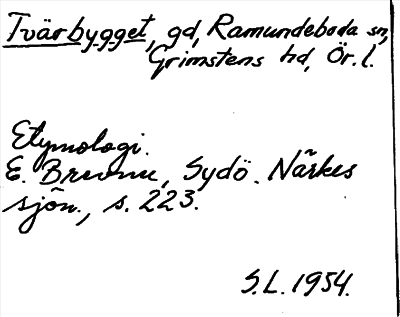 Tvärbygget, gd, Ramundeboda sn,
Grimstens hd, Ör. l.
Etymologi.
E. Brevner, Sydö. Närkes
sjön., s. 223.
S.L. 1954.